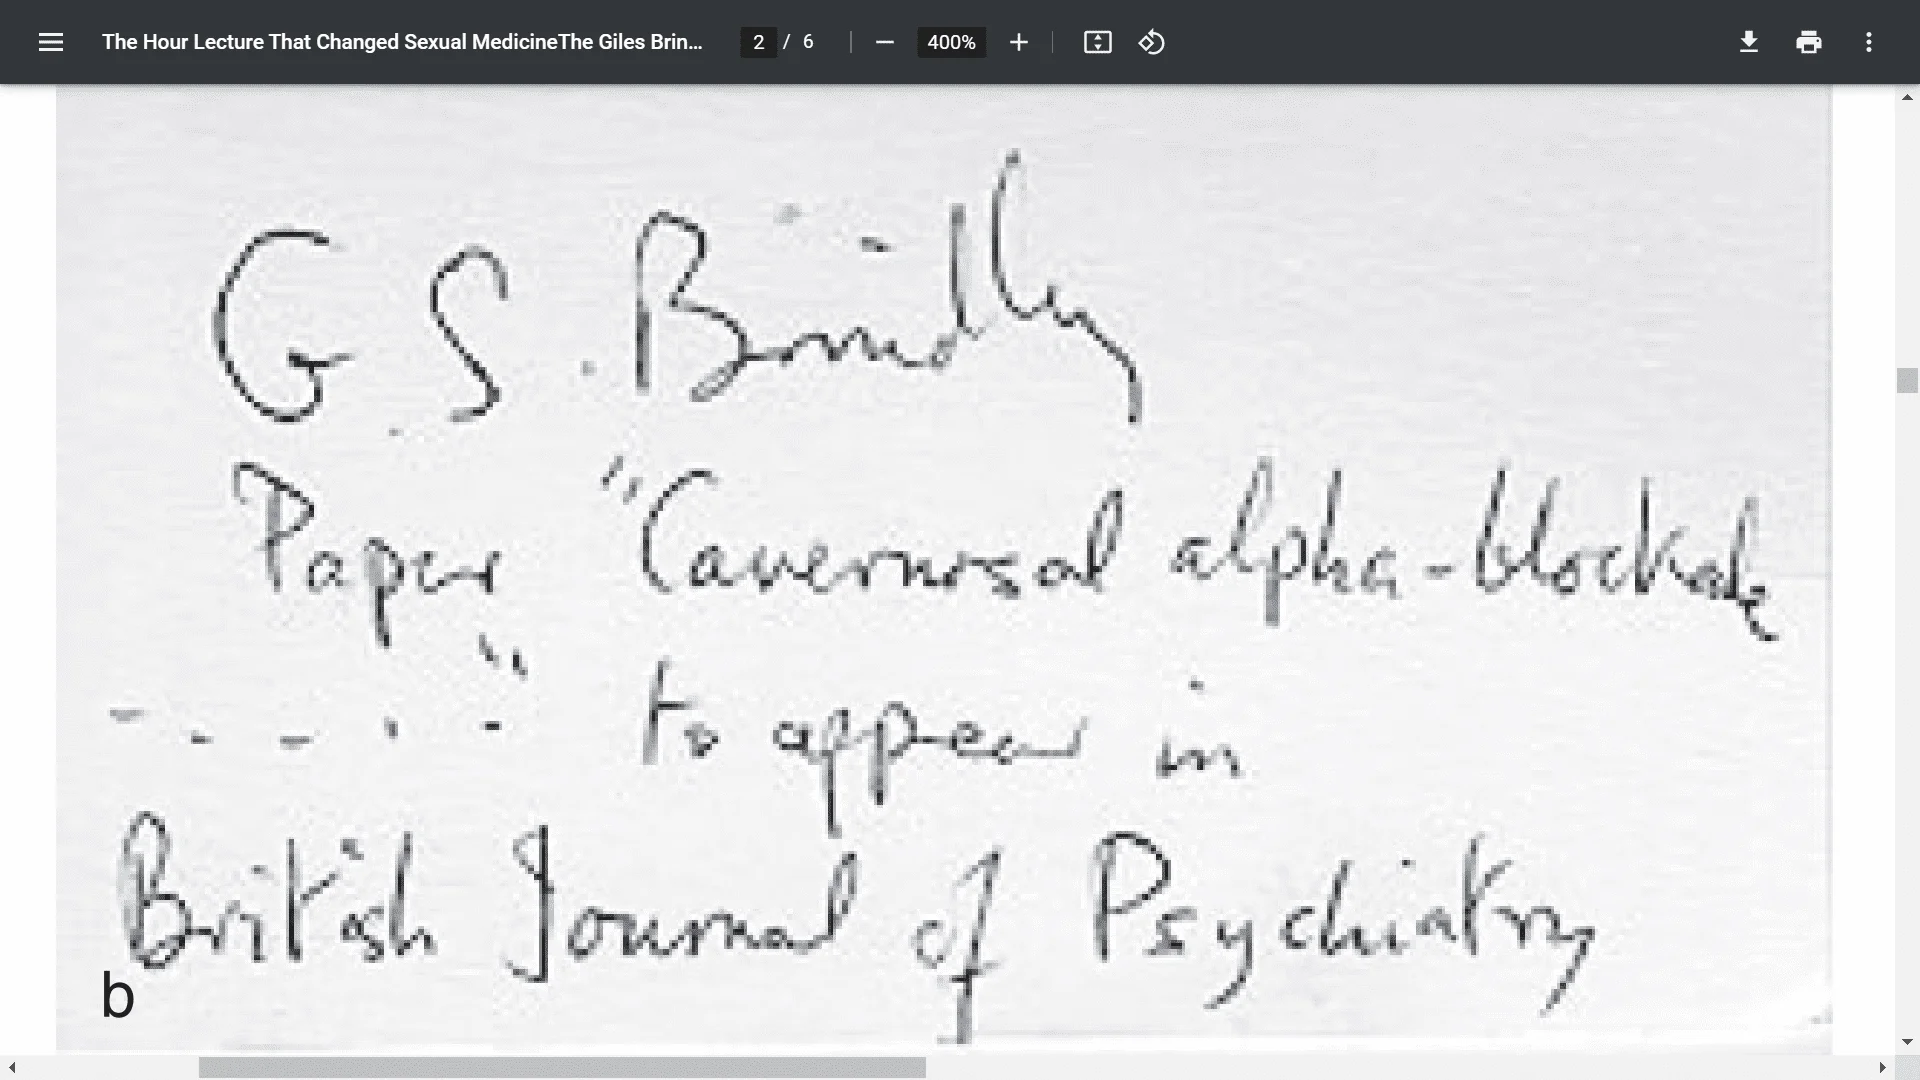 The Hour Lecture That Changed Sexual MedicineThe Giles Brin...
2 / 6
400%
G. S. Brindley
Paper "Cavernosal alpha-blockade
- - - - - " to appear in
British Journal of Psychiatry
b